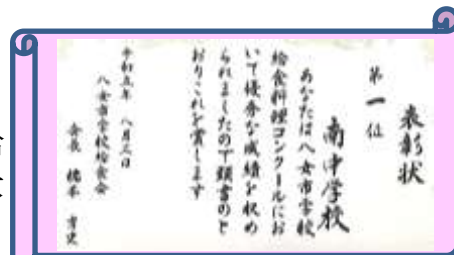 表彰状
第一位
南中学校
あなたは八女市学校
給食料理コンクールにお
いて優秀な成績を収め
られましたので頭書のと
おりこれを賞します
令和五年 八月三日
八女市学校給食会
会長 橋本 吉史